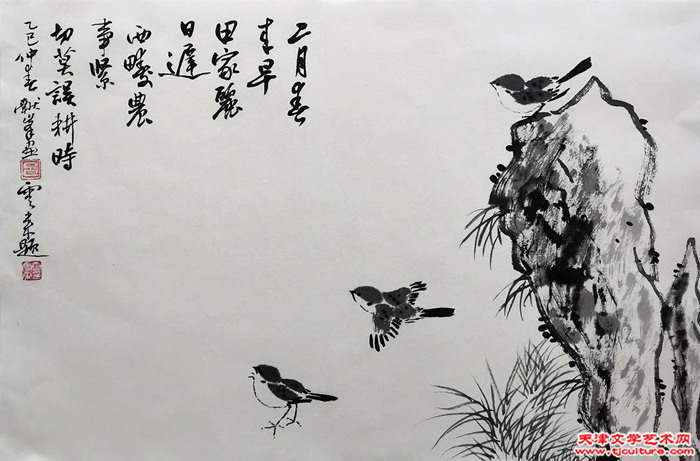 二月春
来早
田家麗
日遲
西疇農
事緊
切莫誤耕時
乙巳仲春献峰画 雲来題
天津文学艺术网
www.tjculture.com